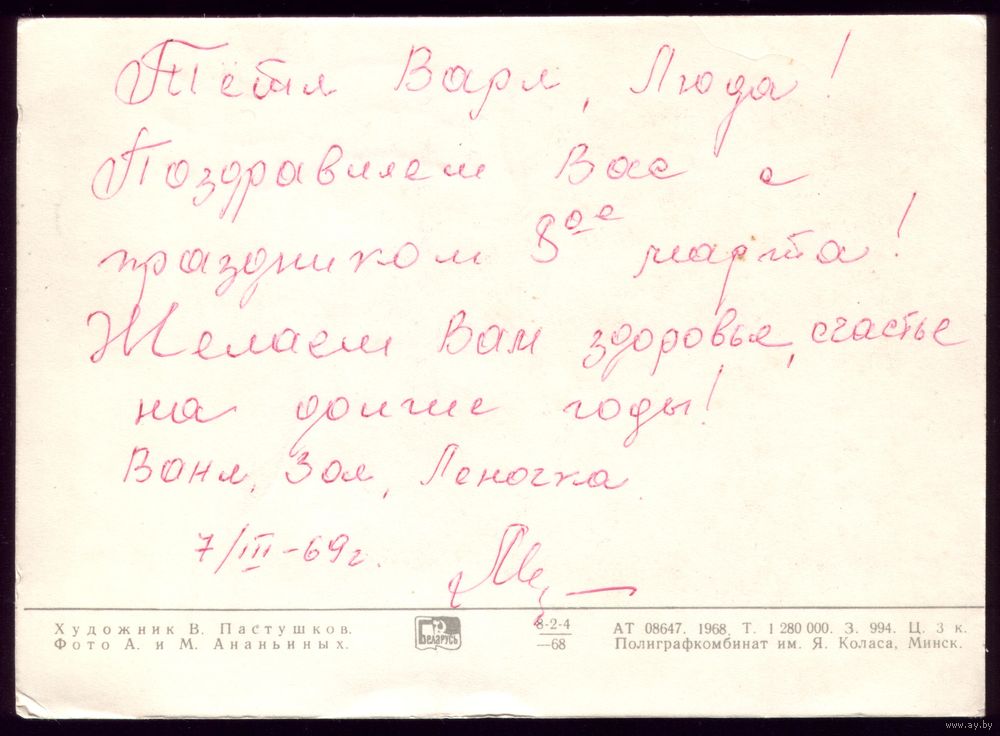 Тётя Варя, Люда!
Поздравляем Вас с
праздником 8ое марта!
Желаем Вам здоровья, счастье
на долгие годы!
Ваня, Зоя, Леночка
7/III-69г.
Художник В. Пастушков.
Фото А. и М. Ананьиных.
Беларусь
8-2-4
—68
АТ 08647. 1968. Т. 1 280 000. З. 994. Ц. 3 к.
Полиграфкомбинат им. Я. Коласа, Минск.
www.ay.by